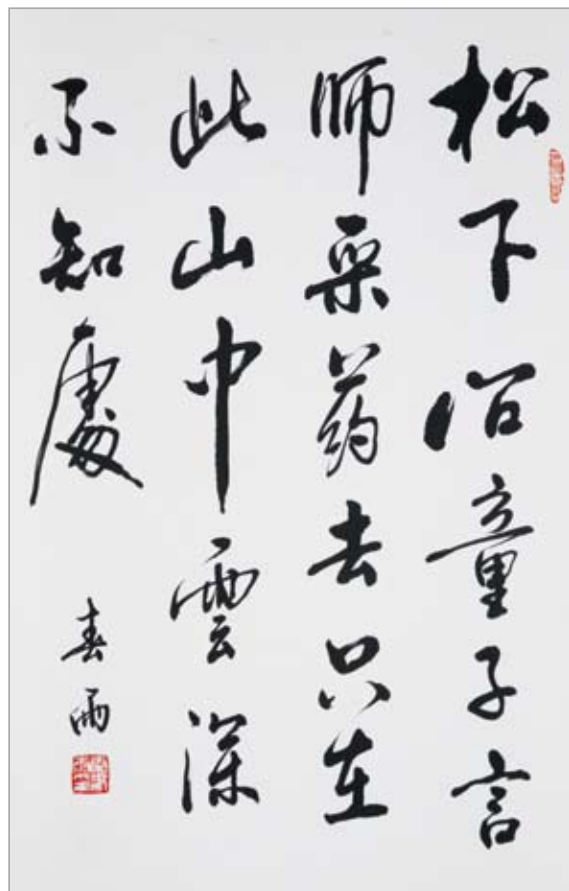 松下问童子言
师采药去只在
此山中雲深
不知處
春雨